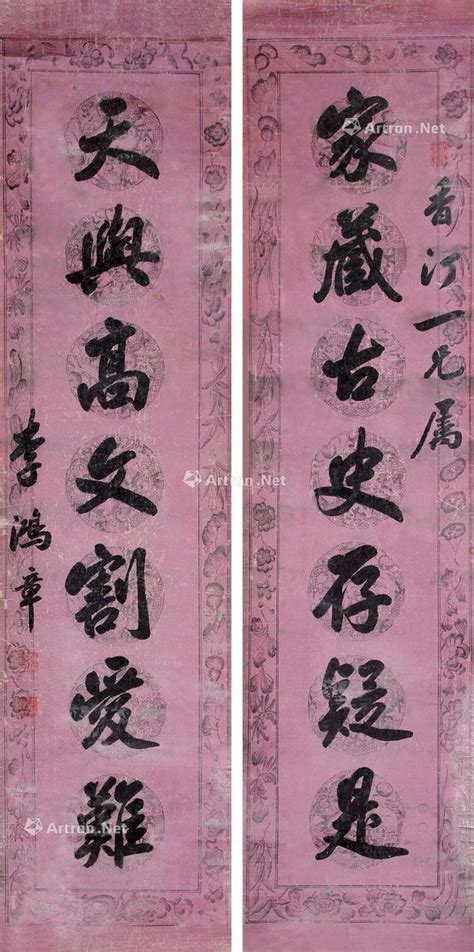 香汀一兄属
家藏古史存疑是
天與高文割愛難
李鴻章
Artron.Net
Artron.Net
Artron.Net
Artron.Net